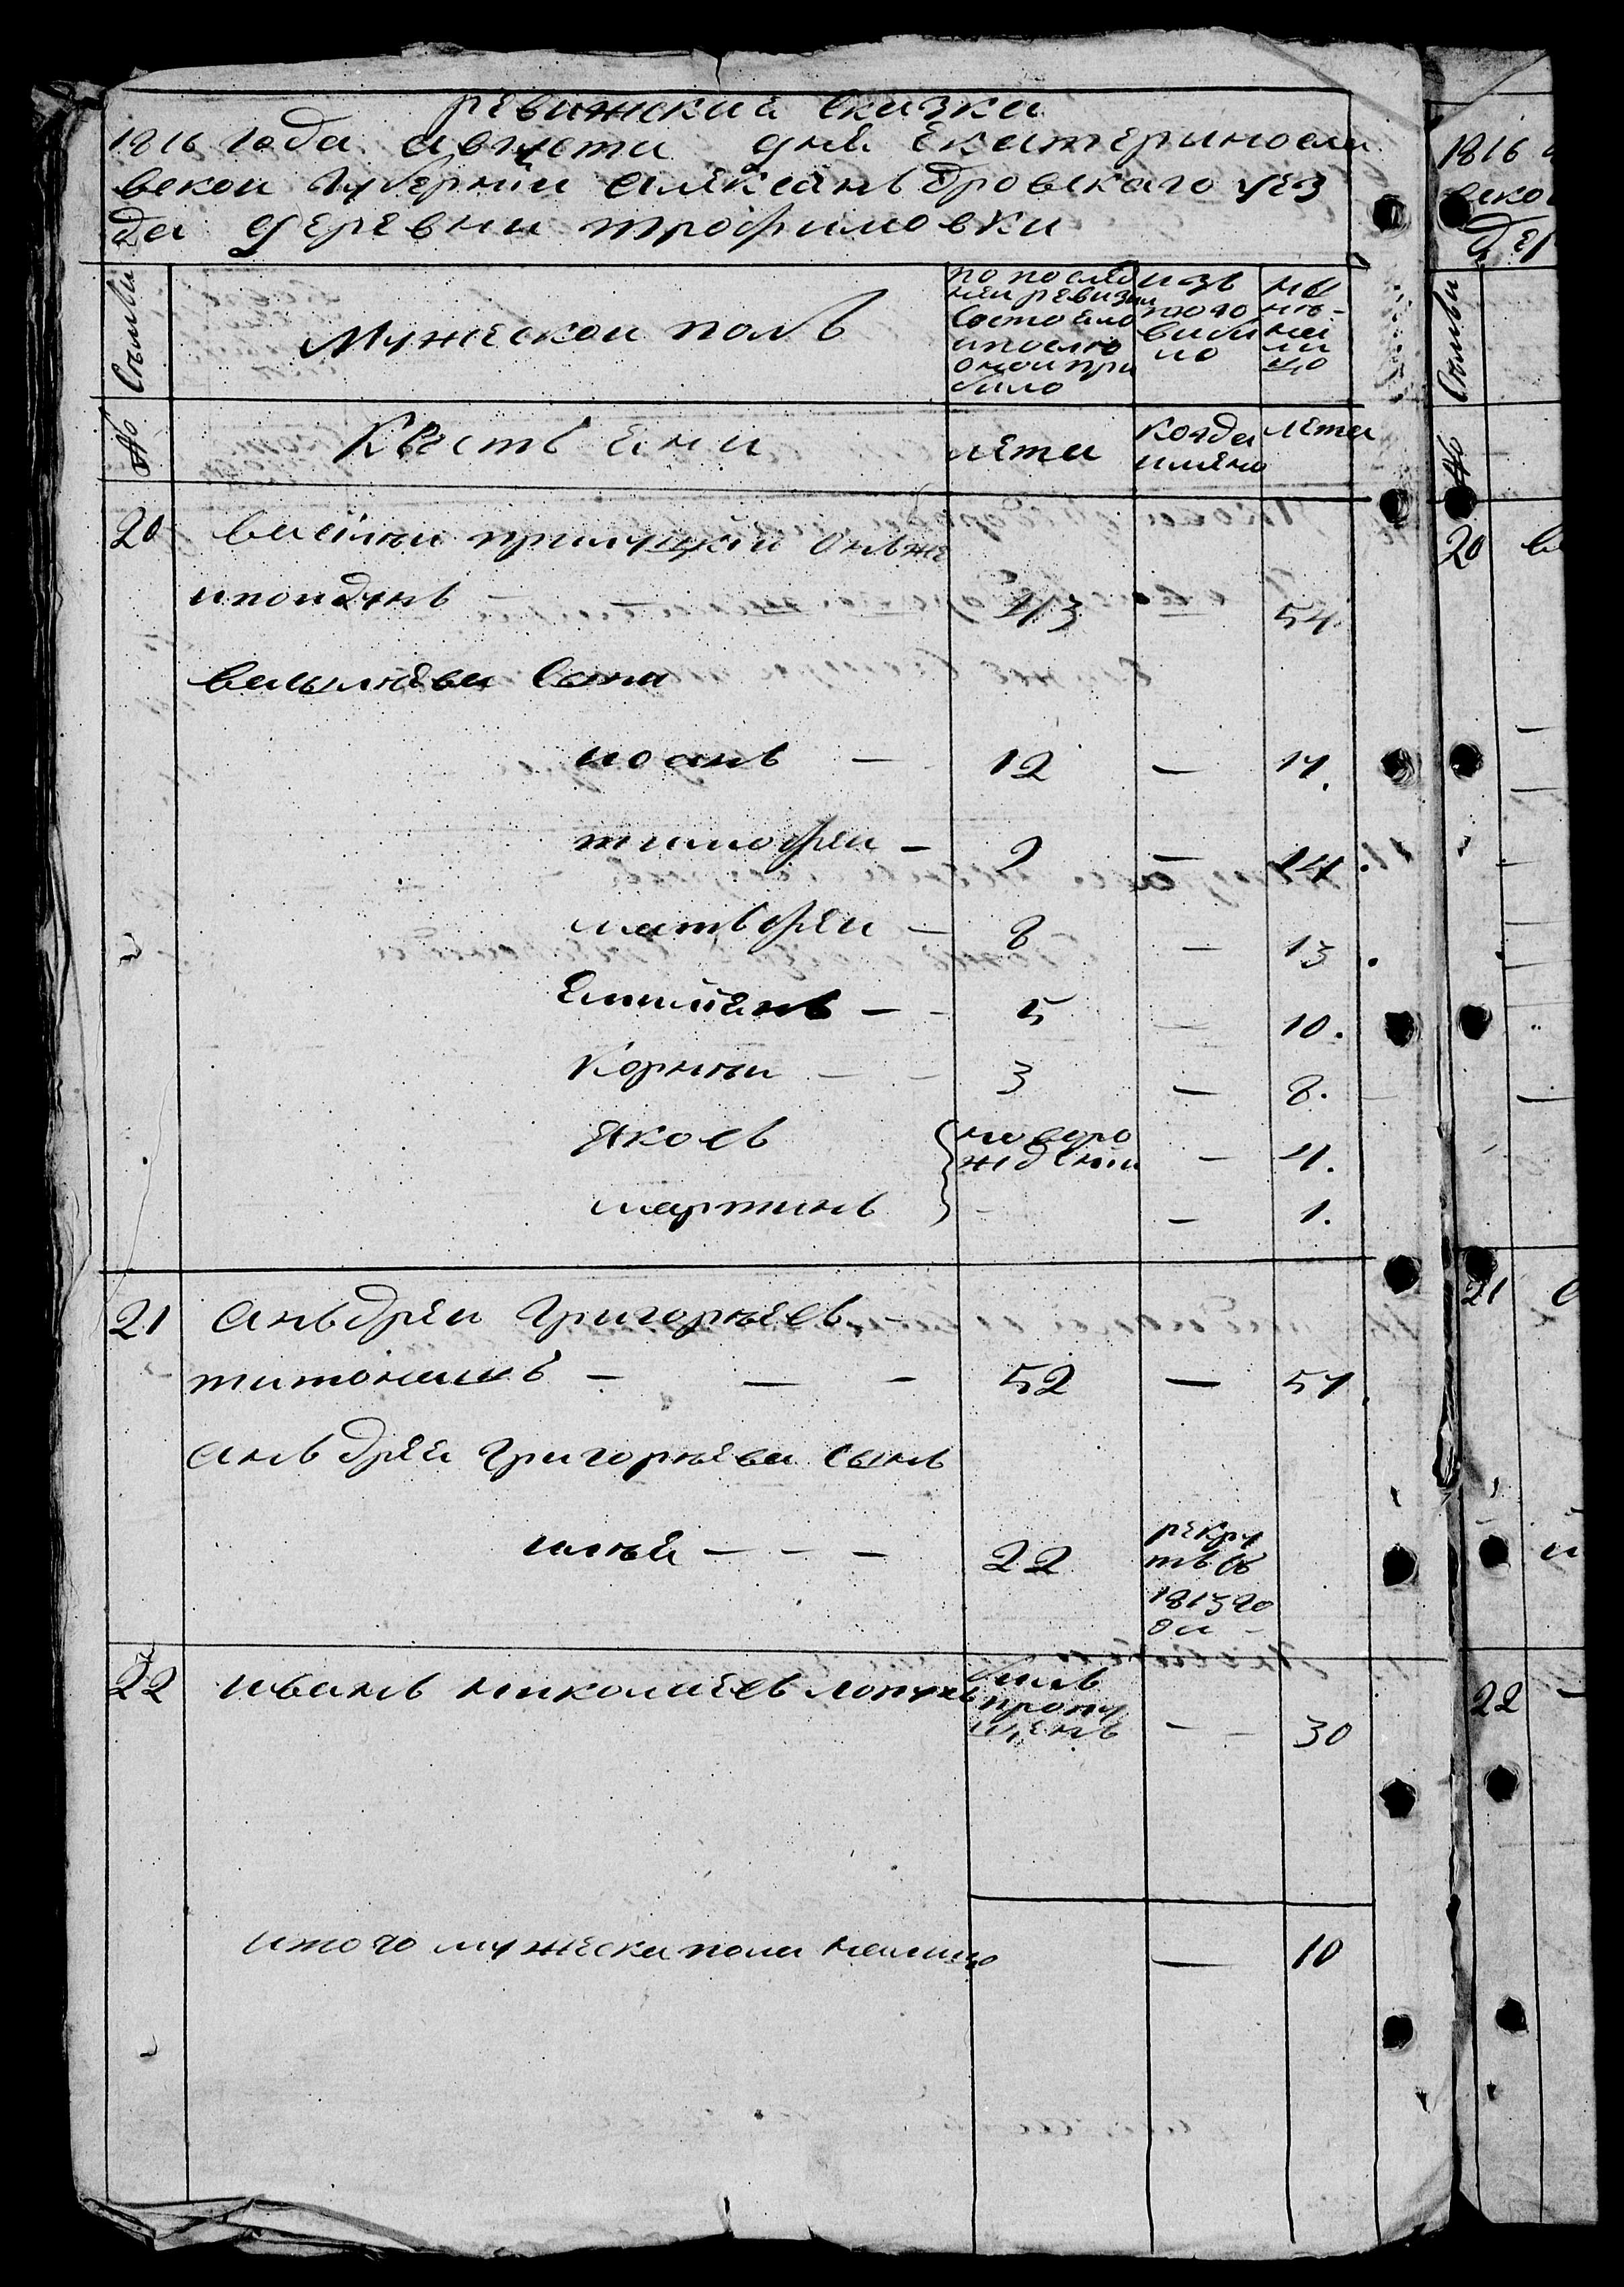 ревижская сказка
1816 года августа дня Екатериносла
вской губернiи александровскаго уез
да деревни трофимовки
Съмьи
Мужескои полъ
по послед
неи ревизии
состояло
и после
онои при
было
изъ
того
выбы
ло
ны
нѣ
на
ли
цо
№
Крестьяни
лета
когда
имяно
лета
20 василеи прилуцкiи онъже
ипоидунъ 43 — 54
васылева сыни
иоанъ — 12 — 17.
тимофеи — 2 — 14.
матвфеи — 8 — 13
Емилиянъ — 5 — 10.
Корнеи — 3 — 8.
Яковъ новоро
ждении — 4.
мартинъ — — 1.
21 анъдреи григорьевъ
титоначъ — — — 52 — 57.
анъдрея григорьева сынъ
илья — — — 22
рекру
тъ въ
1813 го
да
22 иванъ николаевъ лопухъ
билъ
пропу
щенъ — — 30
итого мужеска пола налицо — 10
1816
ско
дер
Съмьи
№
20 ва
21 а
и
22